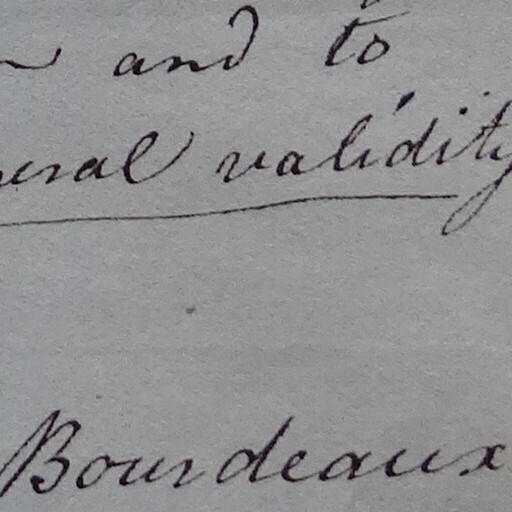 and to
validity
Bourdeaux